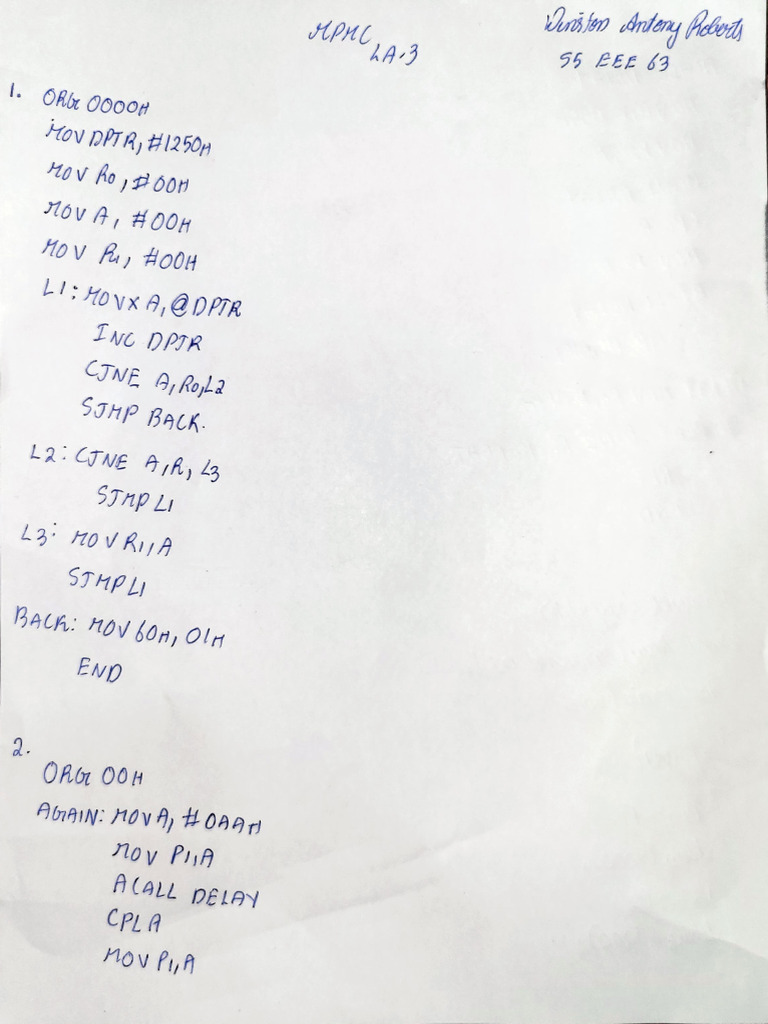 MPMC
LA-3
Winston Antony Roberts
S5 EEE 63
1. ORG 0000H
MOV DPTR, #1250H
MOV R0, #00H
MOV A, #00H
MOV R1, #00H
L1: MOVX A, @DPTR
INC DPTR
CJNE A, R0, L2
SJMP BACK.
L2: CJNE A, R, L3
SJMP L1
L3: MOV R1, A
SJMP L1
BACK: MOV 60H, 01H
END
2.
ORG 00H
AGAIN: MOV A, #0AAH
MOV P1, A
ACALL DELAY
CPL A
MOV P1, A